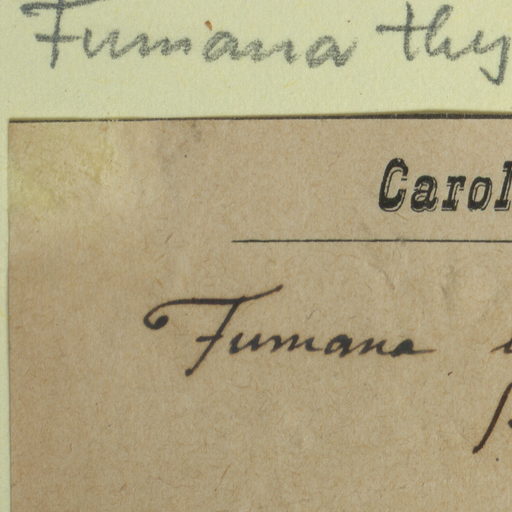 Fumana thy
Carol
Fumana